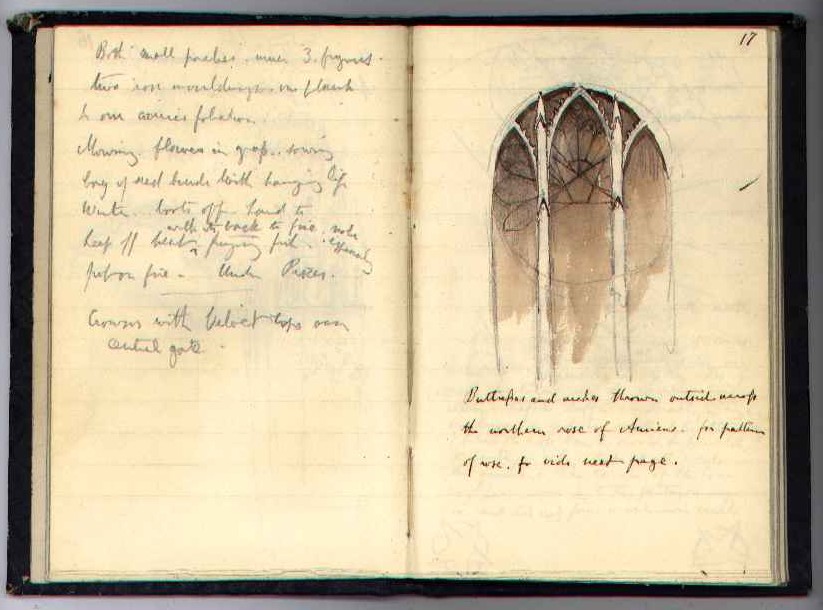 Both small porches. inner 3. figures.
two rose mouldings. one
& one
Mowing. flowers in grass. sowing
bag of seed beside with hanging
Winter. boots off. hand to
with its back to fire. note
keep off heat frying fish.
put on fire. Under Pisces.
Crowns with velvet caps over
central gate.
17
Buttresses and arches thrown outside across
the northern rose of Amiens. for pattern
of rose. vide next page.